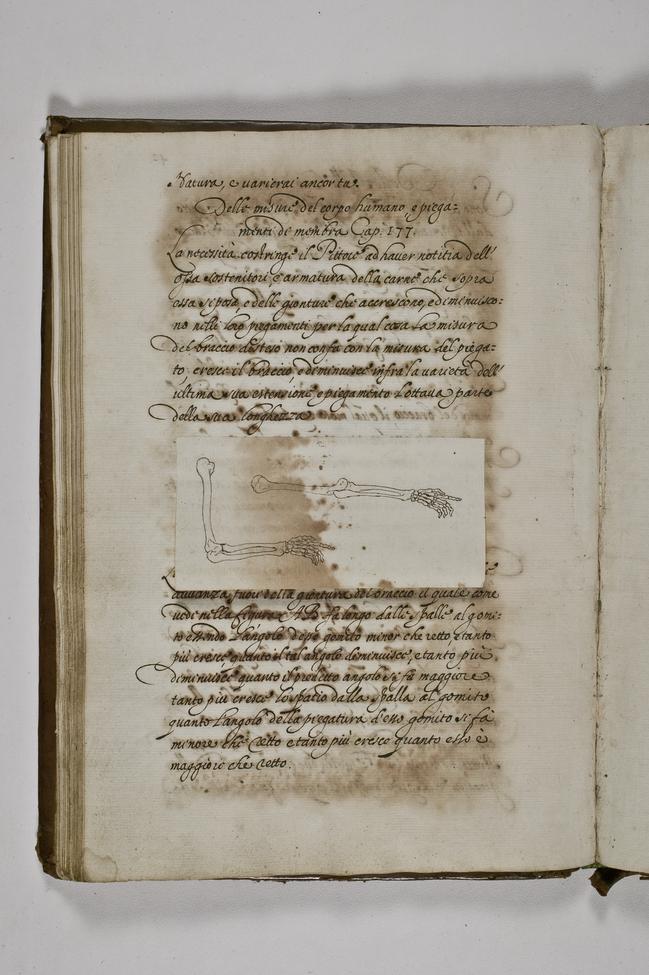 natura, e varierai ancor tu.
Delle misure del corpo humano, e piega=
menti di membra Cap: 177.
La necessità costringe il Pittore ad haver notitia dell'
ossa sostenitori e armatura della carne che sopra
essa si posa, e delle gionture che acrescono, e diminuisco=
no nelli loro piegamenti per la qual cosa la misura
del braccio disteso non confà con la misura del piega=
to cresce il braccio, e diminuisce infra la varietà dell'
ultima sua estensione e piegamento l'ottava parte
della sua longhezza
avvanza fuori della giontura del braccio il quale come
vedi nella figura AB fa longo dalle spalle al gomi=
to essendo l'angolo d'epo gomito minor che retto e tanto
più cresce quanto il tal angolo diminuisce, e tanto più
diminuisce quanto il predetto angolo si fa maggiore
tanto più cresce lo spatio dalla spalla al gomito
quanto l'angolo della piegatura d'esso gomito si fa
minore che retto e tanto più cresce quanto esso è
maggiore che retto.